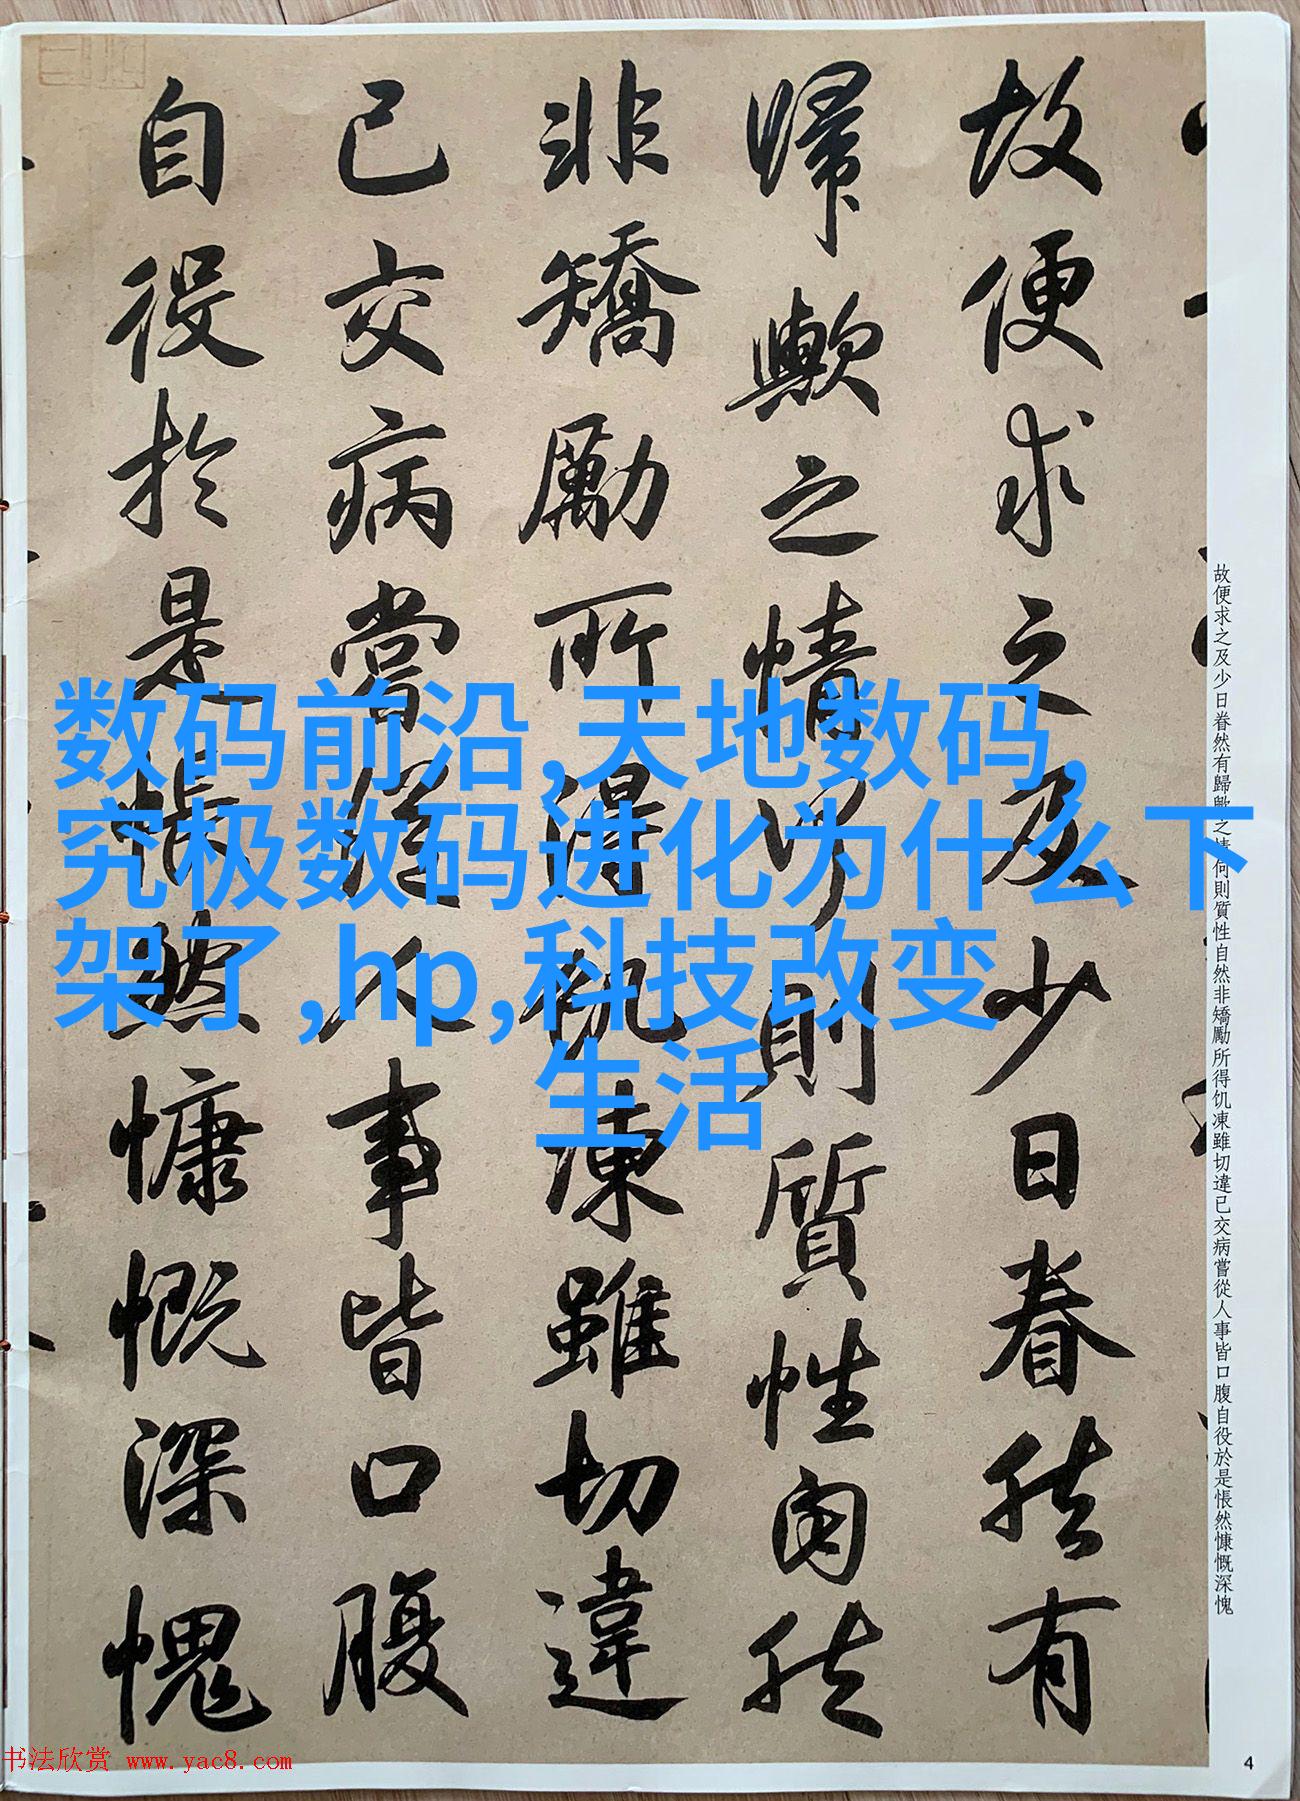 故便求之及少日眷然有
歸歟之情何則質性自然
非矯勵所得飢凍雖切違
已交病嘗從人事皆口腹
自役於是悵然慷慨深愧
故便求之及少日眷然有歸歟之情何則質性自然非矯勵所得饥凍雖切違已交病嘗從人事皆口腹自役於是悵然慷慨深愧
数码前沿,天地数码,
究极数码进化为什么下
架了,hp,科技改变
生活
书法欣赏 www.yac8.com
4